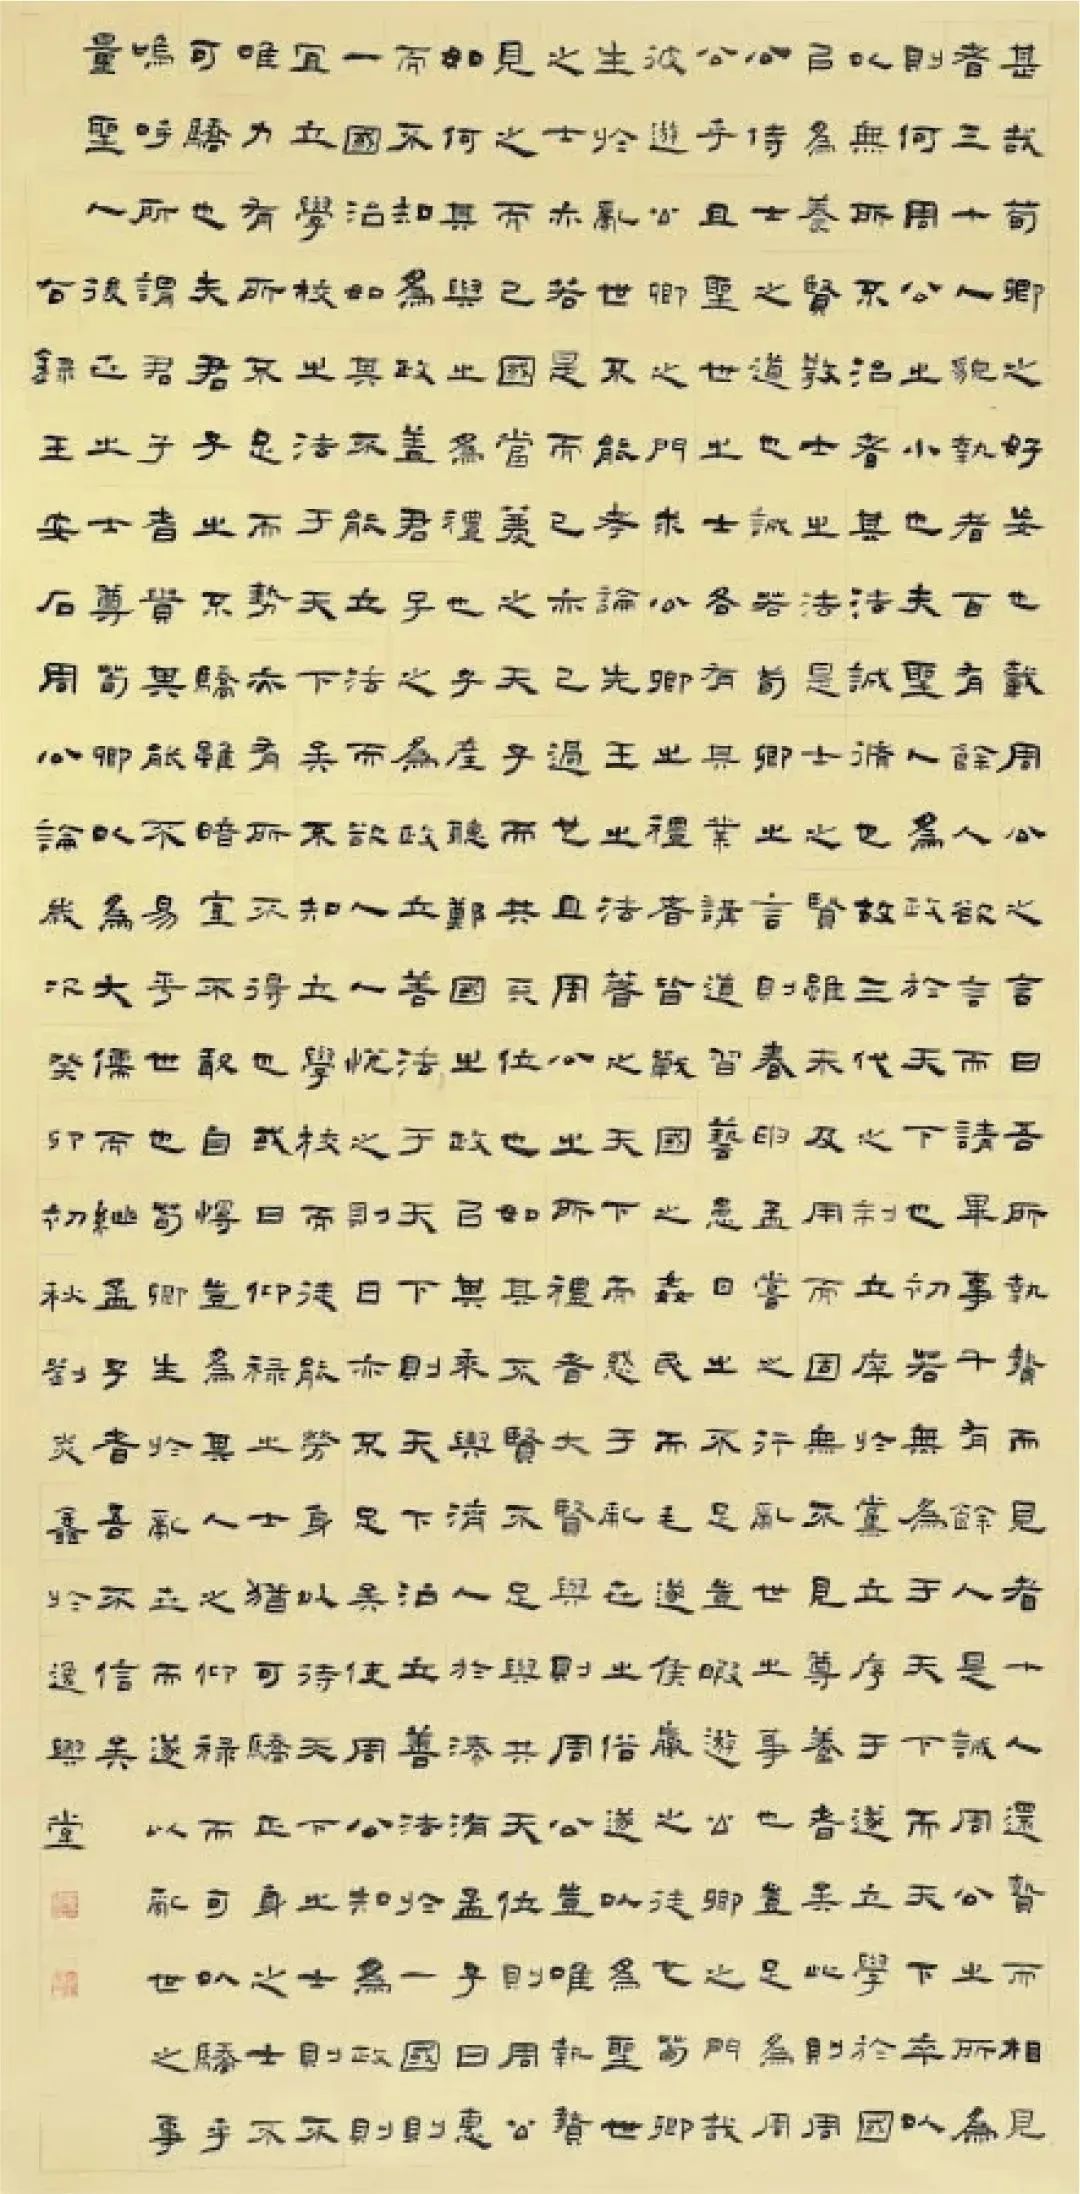 甚哉荀卿之好妄也載周公之言曰吾所執贄而見者十人還贄而相見
者三十人貌執者百有餘人欲言而請畢事千有餘人是誠周公之所為
則何周公之小也夫聖人為政於天下也初若無為于天下而天下卒以
以無所不治者其法誠脩也故三代之制立庠於黨立序于遂立學於國
己為養賢教士之法是士之賢雖未及用而固無不見尊養者矣此則周
公侍士之道也誠若荀卿之言則春申孟嘗之行亂世之事也豈足為周
公乎且聖世之士各有其業講道習藝患日之不足豈暇遊公卿之門哉
彼遊公卿之門求公卿之禮者皆戰國之姦民而毛遂侯嬴之徒也荀卿
生於亂世不能考論先王之法著之天下而惑于亂世之俗遂以為聖世
之士亦若是而已亦已過也且周公之所禮者大賢與則周公豈唯執贄
見之而已國當薦之天子而共天位也如其不賢不足與共天位則周公
如何其與之為禮也子產聽鄭國之政以其乘輿濟人於溱洧孟子曰惠
而不知為政蓋君子之為政立善法于天下則天下治立善法於一國則
一國治如其不能立法而欲人人悅之則日亦不足矣使周公知為政則
宜立學校之法于天下矣不知立學校而徒能勞身以待天下之士則不
唯力有所不足而勢亦有所不得也或曰仰祿之士猶可驕正身之士不
可驕也夫君子之不驕雖暗室不敢自慢豈為其人之仰祿而可以驕乎
嗚呼所謂君子者貴其能不易乎世也荀卿生於亂世而遂以亂世之事
量聖人後世之士尊荀卿以為大儒而繼孟子者吾不信矣
右錄王安石周公論歲次癸卯初秋劉炎鑫於逸興堂